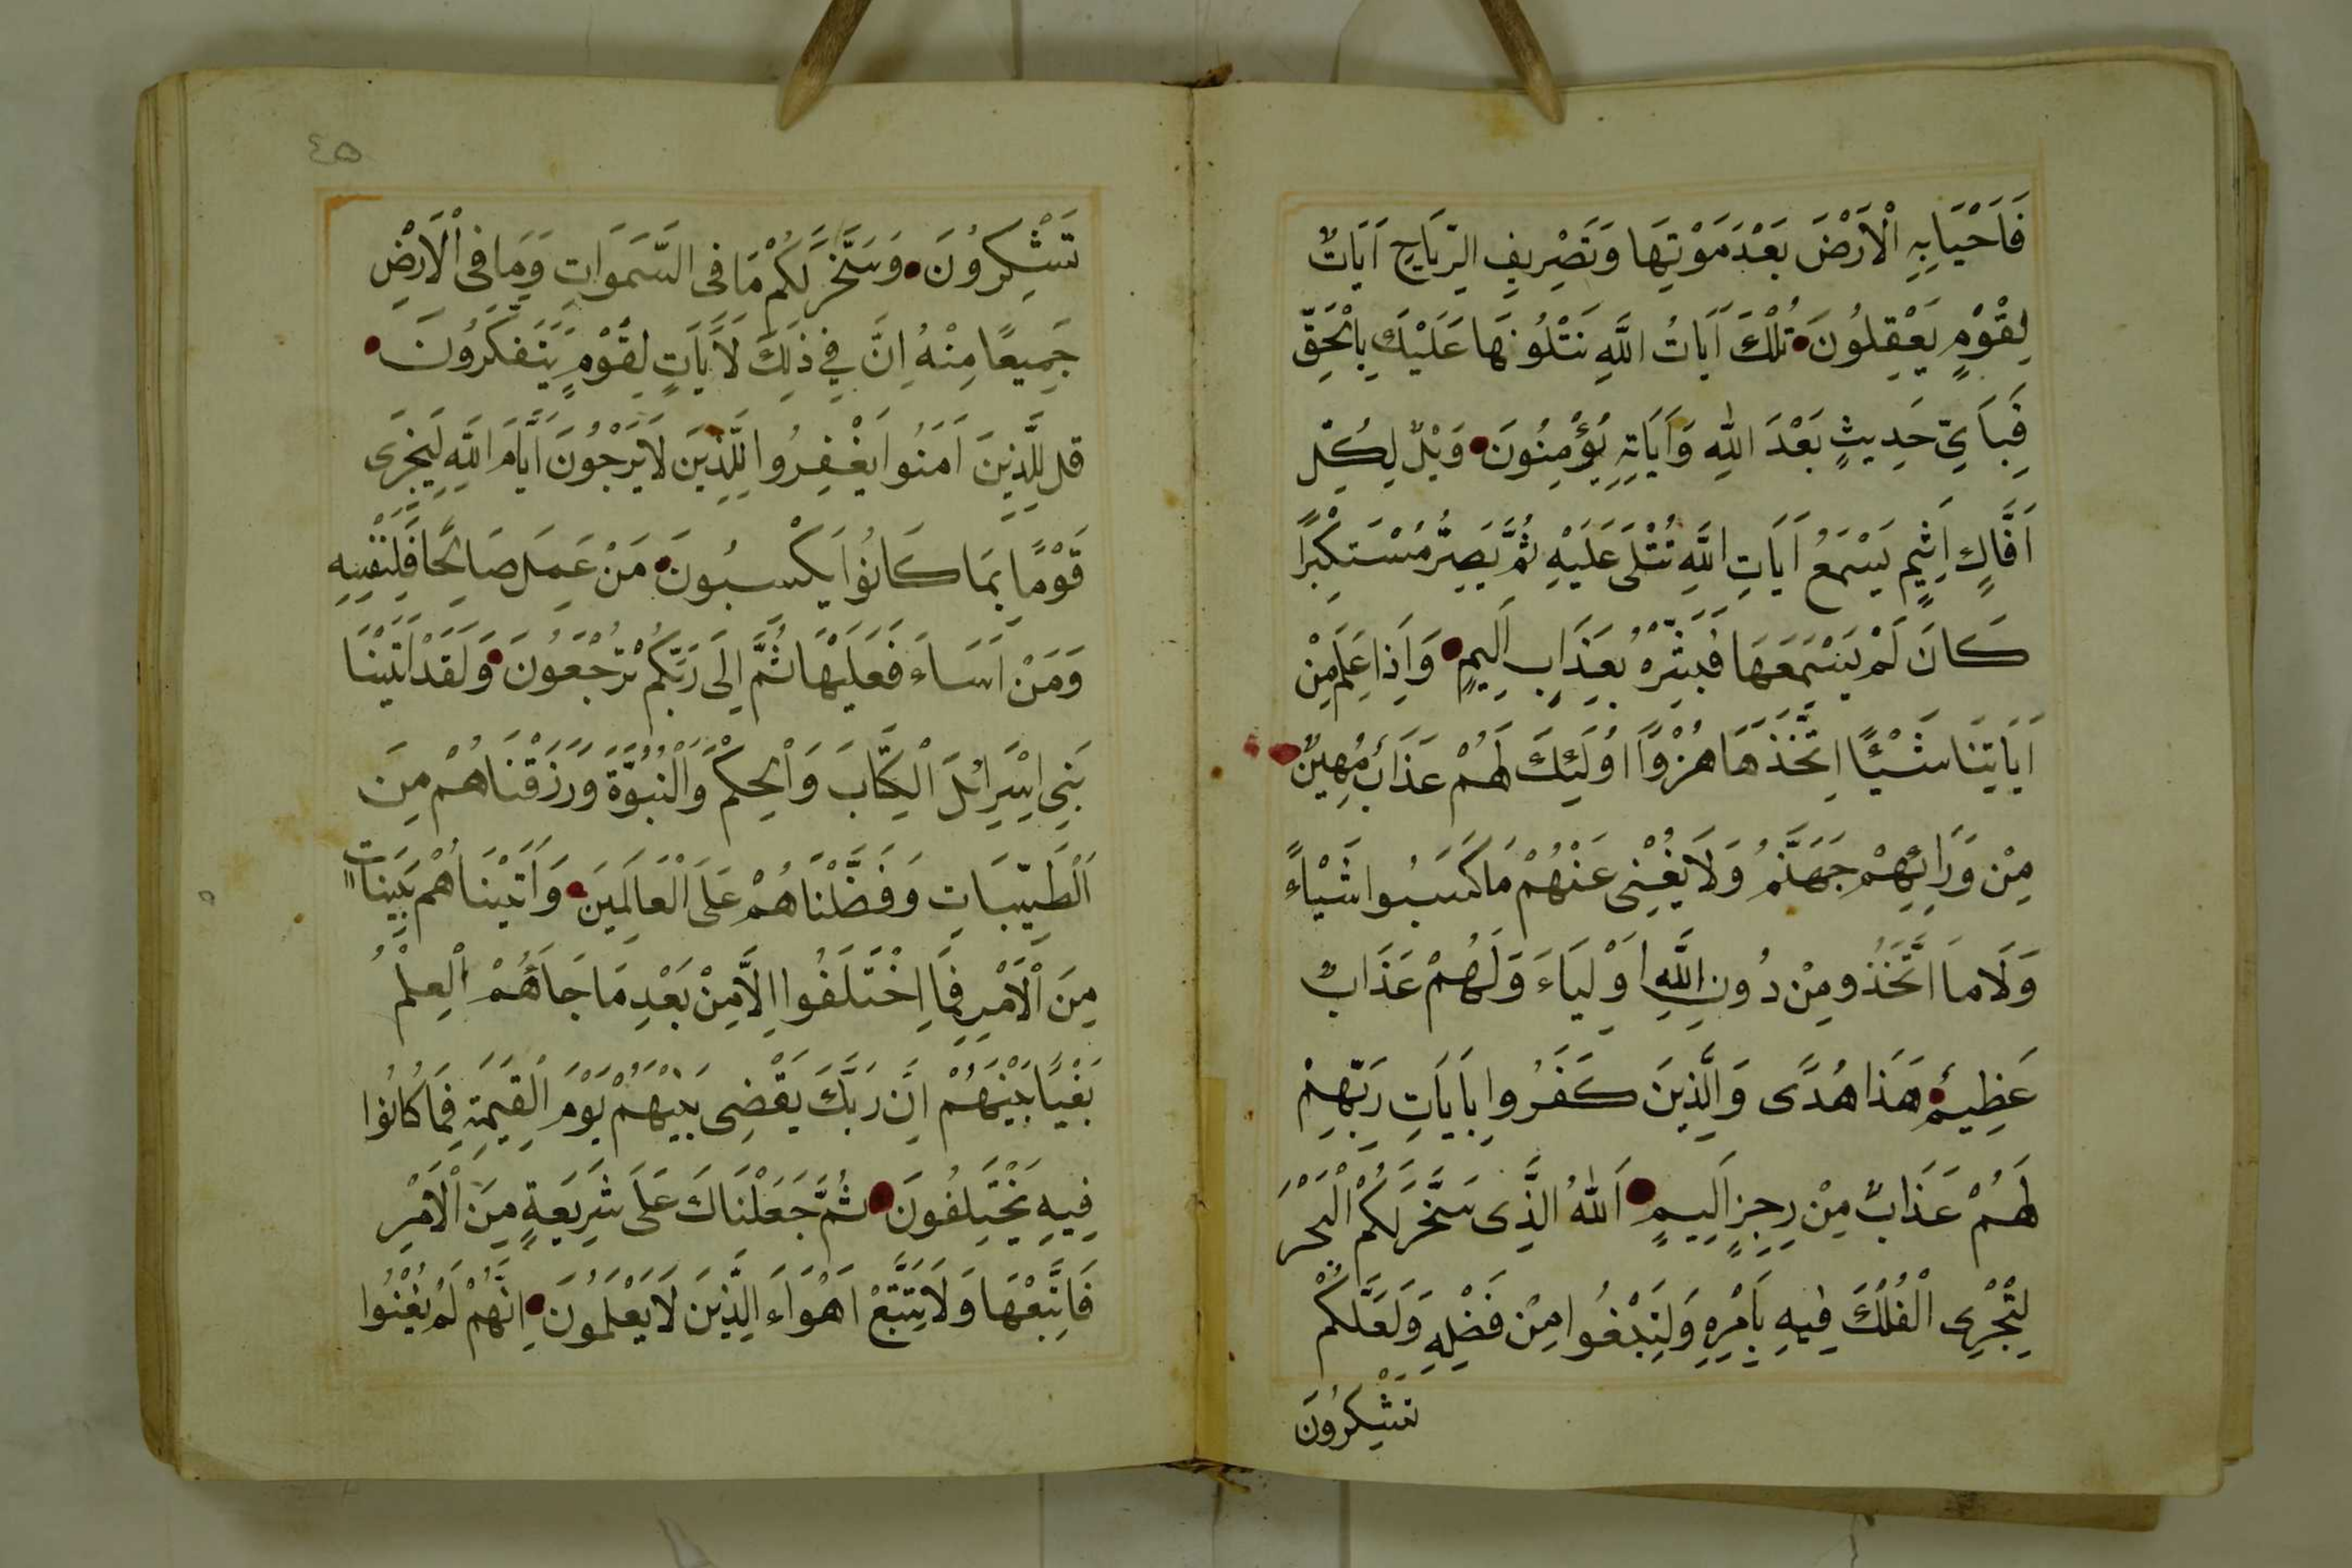 فَاَحْيَا بِهِ الْاَرْضَ بَعْدَ مَوْتِهَا وَتَصْرِيفِ الرِّيَاحِ اَيَاتٌ
لِقَوْمٍ يَعْقِلُونَ تِلْكَ اَيَاتُ اللَّهِ نَتْلُوهَا عَلَيْكَ بِالْحَقِّ
فَبِاَيِّ حَدِيثٍ بَعْدَ اللهِ وَاَيَاتِهِ يُؤْمِنُونَ وَيْلٌ لِكُلِّ
اَفَّاكٍ اَثِيمٍ يَسْمَعُ اَيَاتِ اللَّهِ تُتْلَى عَلَيْهِ ثُمَّ يُصِرُّ مُسْتَكْبِرًا
كَانَ لَمْ يَسْمَعْهَا فَبَشِّرْهُ بِعَذَابٍ اَلِيمٍ وَاِذَا عَلِمَ مِنْ
اَيَاتِنَا شَيْئًا اِتَّخَذَهَا هُزْوًا اُولَئِكَ لَهُمْ عَذَابٌ مُهِينٌ
مِنْ وَرَائِهِمْ جَهَنَّمُ وَلَا يُغْنِى عَنْهُمْ مَا كَسَبُوا شَيْاءً
وَلَا مَا اتَّخَذُو مِنْ دُونِ اللَّهِ اَوْلِيَاءَ وَلَهُمْ عَذَابٌ
عَظِيمٌ هَذَا هُدًى وَالَّذِينَ كَفَرُوا بِاَيَاتِ رَبِّهِمْ
لَهُمْ عَذَابٌ مِنْ رِجِزٍ اَلِيمٍ اَللهُ الَّذِى سَخَّرَ لَكُمْ الْبَحْرَ
لِتَجْرِى الْفُلْكَ فِيهِ بِاَمْرِهِ وَلِتَبْتَغُوا مِنْ فَضْلِهِ وَلَعَلَّكُمْ
تَشْكِرُونَ
٤٥
تَشْكِرُونَ وَسَخَّرَ لَكُمْ مَا فِى السَّمَوَاتِ وَمَا فِى الْاَرْضِ
جَمِيعًا مِنْهُ اِنَّ فِي ذَلِكَ لَاَيَاتٍ لِقَوْمٍ يَتَفَكَّرُونَ
قل لِلَّذِينَ اَمَنُوا يَغْفِرُوا لِلَّذِينَ لَا يَرْجُونَ اَيَّامَ اللَّهِ لِيَجْزِىَ
قَوْمًا بِمَا كَانُوا يَكْسِبُونَ مَنْ عَمِلَ صَالِحًا فَلِنَفْسِهِ
وَمَنْ اَسَاءَ فَعَلَيْهَا ثُمَّ اِلَى رَبِّكُمْ تُرْجَعُونَ وَلَقَدْ اَتَيْنَا
بَنِى اِسْرَائِلَ الْكِتَابَ وَالْحِكْمَ وَالْنُبُوَّةَ وَرَزَقْنَاهُمْ مِنَ
اَلْطَيِّبَاتِ وَفَضَّلْنَاهُمْ عَلَى الْعَالَمِينَ وَاَتَيْنَاهُمْ بَيِّنَاتٍ
مِنَ الْاَمْرِ فِمَا اِخْتَلَفُوا اِلَّا مِنْ بَعْدِ مَا جَاءَهُمْ الْعِلْمُ
بَغْيًا بَيْنَهُمْ اِنَّ رَبَّكَ يَقْضِى بَيْنَهُمْ يَوْمَ الْقِيَمَةِ فِمَا كَانُوا
فِيهِ يَخْتَلِفُونَ ثُمَّ جَعَلْنَاكَ عَلَى شَرِيَعَةٍ مِنَ الْاَمْرِ
فَاتَّبِعْهَا وَلَا تَتَّبِعْ اَهْوَاءَ الَّذِينَ لَا يَعْلَمُونَ اِنَّهُمْ لَمْ يُغْنُوا